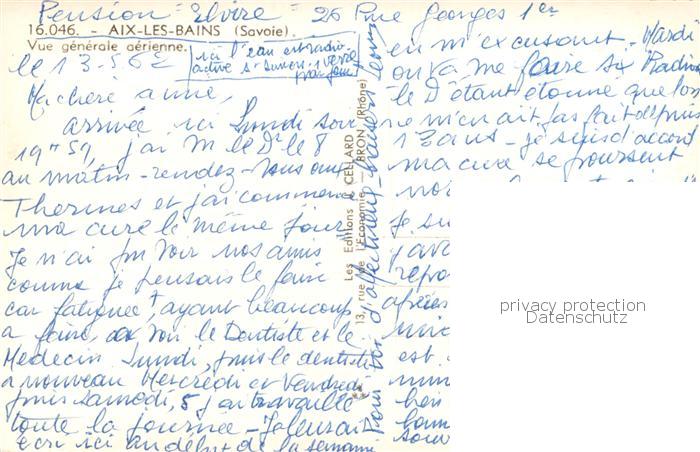 Pension "Elvire" 26 Rue Georges 1er
16.046. - AIX-LES-BAINS (Savoie).
Vue générale aérienne.
le 13-5 62
ici l'eau est radio-
active s'buvons 1 verre
par jour
Ma chère amie,
arrivée ici Lundi soir
19h 59, j'ai vu le Dr le 8
au matin - rendez-vous aux
Thermes et j'ai commencé
ma cure le même jour
Je n'ai pu voir nos amis
comme je pensais le faire
car fatiguée, ayant beaucoup
a faire, voir le Dentiste et le
Medecin Lundi, puis le dentiste
a nouveau Mercredi et Vendredi
puis Samedi, 5 j'ai travaillé
toute la journée - Je leur ai
écrit ici au début de la semaine
en m'excusant - Mardi
on va me faire six Radios
le Dr étant étonné que l'on
ne m'en ait pas fait depuis
13 ans - je suis d'accord
ma cure se poursuit
Je su
j'ava
repo
après
est
Pour toi d'affectueux baisers
Les Editions J. CELLARD
13, rue de l'Economie - BRON (Rhône)
privacy protection
Datenschutz